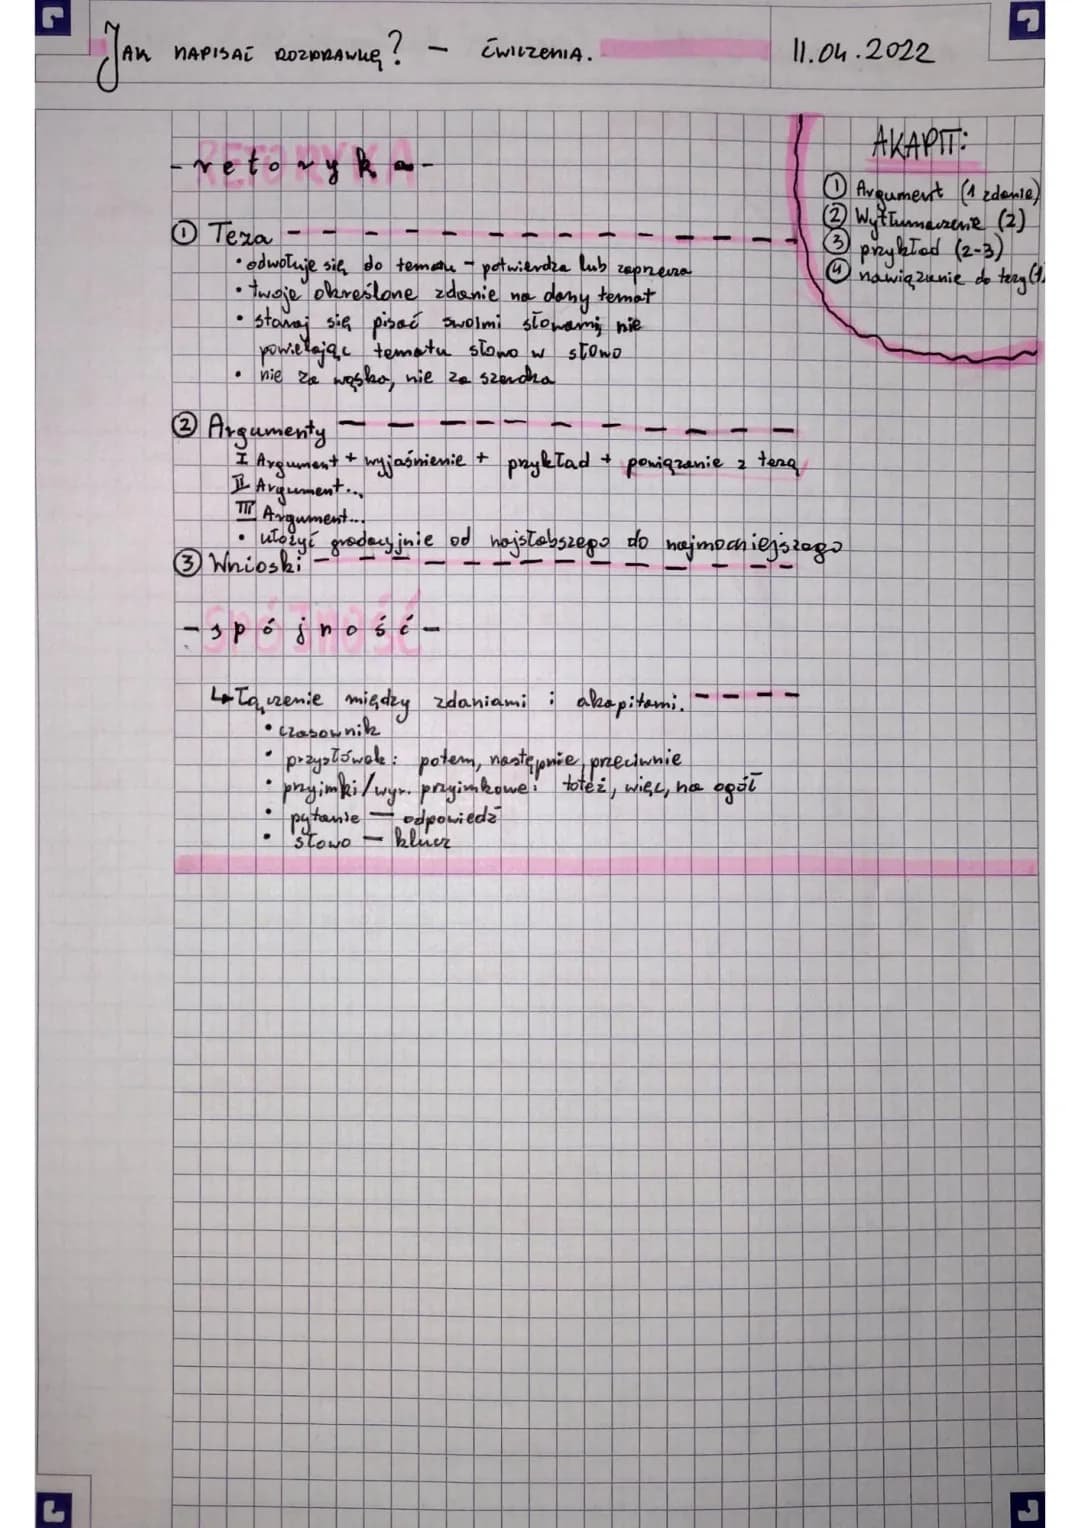 JAK NAPISAĆ ROZPRAWKĘ? - ĆWICZENIA.
11.04.2022
RETORYKA
- retoryka -
AKAPIT:
① Argument (1 zdanie)
② Wytłumaczenie (2)
③ przykład (2-3)
④ nawiązanie do tezy (1
① Teza
• odwołuje się do tematu - potwierdza lub zaprzecza
• twoje określone zdanie na dany temat
• staraj się pisać swoimi słowami, nie
powielając tematu słowo w słowo
• nie za wąsko, nie za szeroko
② Argumenty
I Argument + wyjaśnienie + przykład + powiązanie z tezą
II Argument...
III Argument...
• ułożyć gradacyjnie od najsłabszego do najmocniejszego
③ Wnioski
SPÓJNOŚĆ
- spójność -
↳ Łączenie między zdaniami i akapitami.
• czasownik
• przysłówek: potem, następnie, przeciwnie
• przyimki/wyr. przyimkowe: toteż, więc, na ogół
• pytanie — odpowiedź
• słowo — klucz